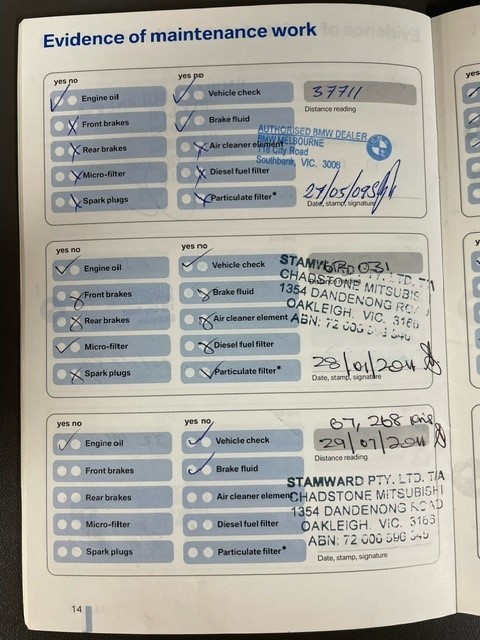 Evidence of maintenance work
yes no
Engine oil
Front brakes
Rear brakes
Micro-filter
Spark plugs
yes no
Vehicle check
Brake fluid
Air cleaner element
Diesel fuel filter
Particulate filter*
37711
Distance reading
AUTHORISED BMW DEALER
BMW MELBOURNE
118 City Road
Southbank, VIC. 3006
Date, stamp, signature
yes no
Engine oil
Front brakes
Rear brakes
Micro-filter
Spark plugs
yes no
Vehicle check
Brake fluid
Air cleaner element
Diesel fuel filter
Particulate filter*
STAMWARD PTY. LTD. T/A
CHADSTONE MITSUBISHI
1354 DANDENONG ROAD
OAKLEIGH. VIC. 3166
ABN: 72 006
28/01/2011
Date, stamp, signature
yes no
Engine oil
Front brakes
Rear brakes
Micro-filter
Spark plugs
yes no
Vehicle check
Brake fluid
Air cleaner element
Diesel fuel filter
Particulate filter*
67,268 kms
29/07/2011
Distance reading
STAMWARD PTY. LTD. T/A
CHADSTONE MITSUBISHI
1354 DANDENONG ROAD
OAKLEIGH. VIC. 3166
ABN: 72 006 596 540
Date, stamp, signature
14